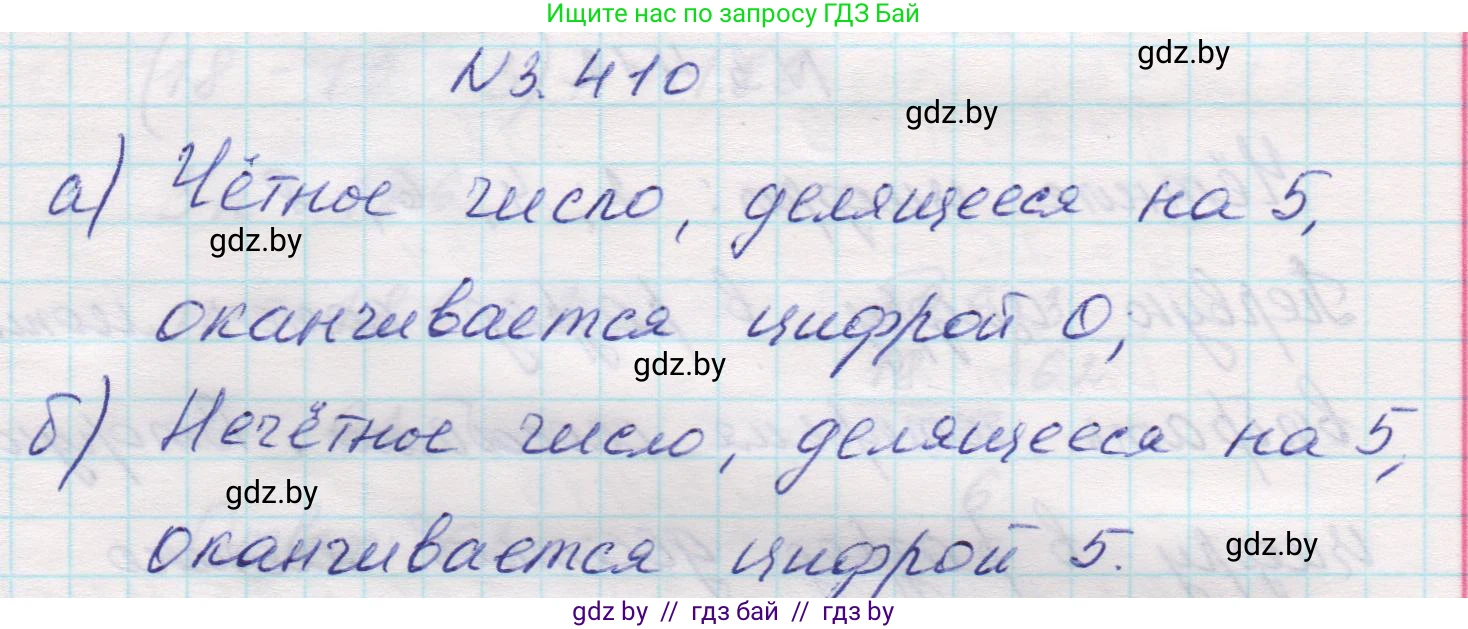 Ищите нас по запросу ГДЗ Бай
N3.410
gdz.by
gdz.by
а) Чётное число, делящееся на 5,
gdz.by
оканчивается цифрой 0;
gdz.by
б) Нечётное число, делящееся на 5,
gdz.by
оканчивается цифрой 5.
gdz.by
gdz by // гдз бай // гдз by